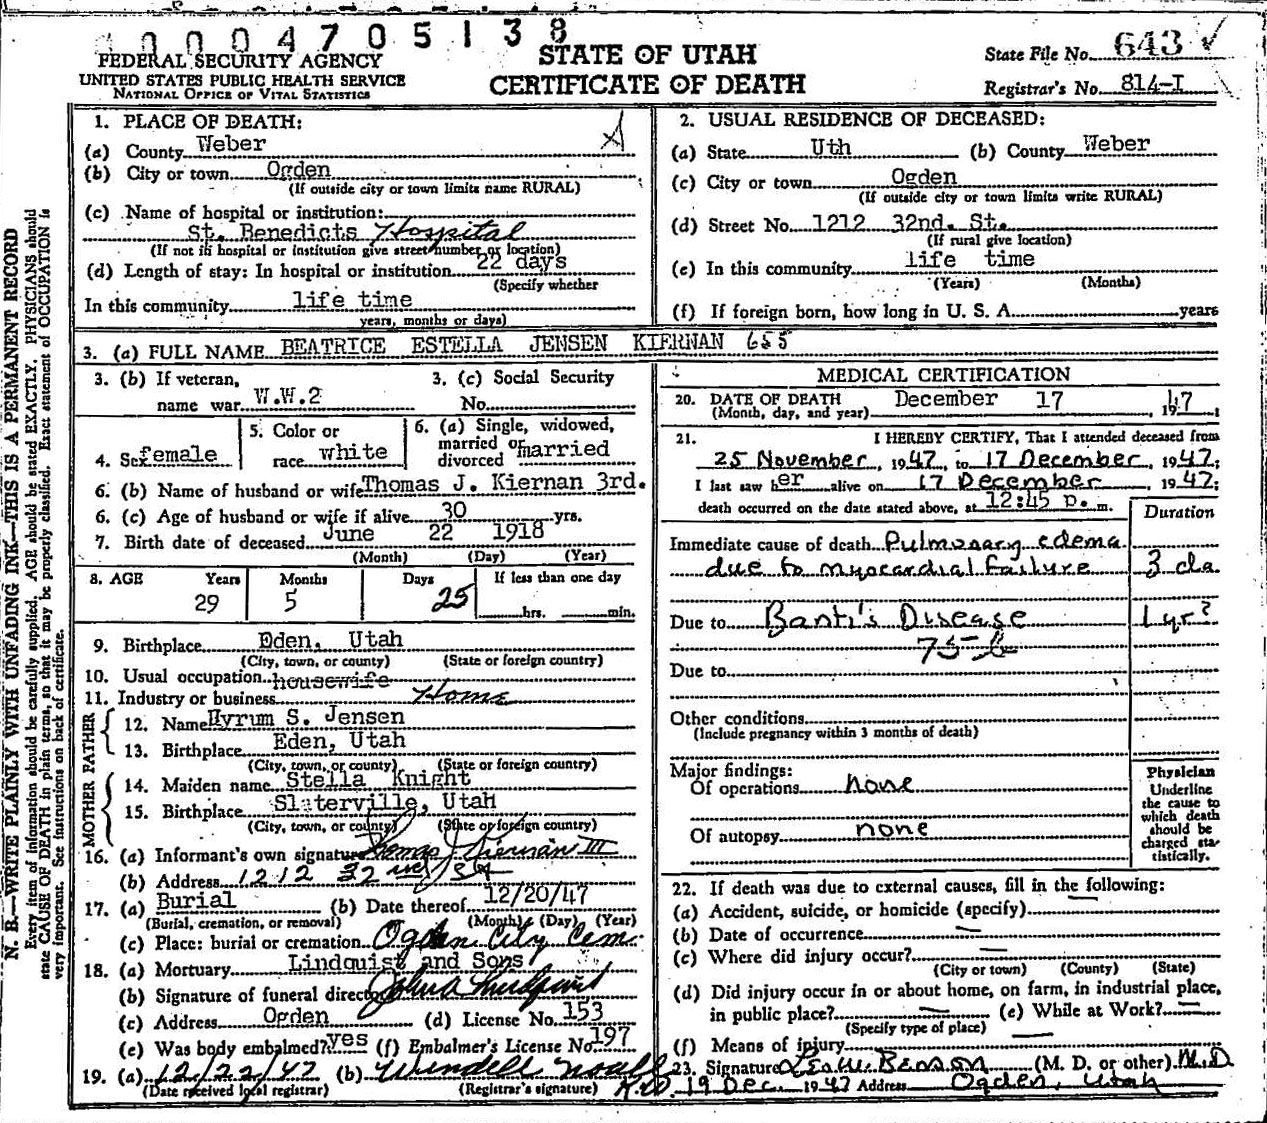 0004705138
FEDERAL SECURITY AGENCY
UNITED STATES PUBLIC HEALTH SERVICE
NATIONAL OFFICE OF VITAL STATISTICS
STATE OF UTAH
CERTIFICATE OF DEATH
State File No. 643 ✓
Registrar's No. 814-I
N. B.—WRITE PLAINLY WITH UNFADING INK—THIS IS A PERMANENT RECORD
Every item of information should be carefully supplied. AGE should be stated EXACTLY. PHYSICIANS should
state CAUSE OF DEATH in plain terms, so that it may be properly classified. Exact statement of OCCUPATION is
very important. See instructions on back of certificate.
1. PLACE OF DEATH: A
(a) County Weber
(b) City or town Ogden
(If outside city or town limits name RURAL)
(c) Name of hospital or institution:
St. Benedicts Hospital
(If not in hospital or institution give street number or location)
(d) Length of stay: In hospital or institution 22 days
(Specify whether
In this community life time
years, months or days)
2. USUAL RESIDENCE OF DECEASED:
(a) State Uth (b) County Weber
(c) City or town Ogden
(If outside city or town limits write RURAL)
(d) Street No. 1212 32nd. St.
(If rural give location)
(e) In this community life time
(Years) (Months)
(f) If foreign born, how long in U. S. A. years
3. (a) FULL NAME BEATRICE ESTELLA JENSEN KIERNAN 655
3. (b) If veteran,
name war W.W.2
3. (c) Social Security
No.
4. Sex female
5. Color or
race white
6. (a) Single, widowed,
married or
divorced married
6. (b) Name of husband or wife Thomas J. Kiernan 3rd.
6. (c) Age of husband or wife if alive 30 yrs.
7. Birth date of deceased June 22 1918
(Month) (Day) (Year)
8. AGE Years Months Days If less than one day
29 5 25 hrs. min.
9. Birthplace Eden, Utah
(City, town, or county) (State or foreign country)
10. Usual occupation housewife
11. Industry or business Home
FATHER
12. Name Hyrum S. Jensen
13. Birthplace Eden, Utah
(City, town, or county) (State or foreign country)
MOTHER
14. Maiden name Stella Knight
15. Birthplace Slaterville, Utah
(City, town, or county) (State or foreign country)
16. (a) Informant's own signature Thomas J. Kiernan III
(b) Address 1212 32nd St
17. (a) Burial (b) Date thereof 12/20/47
(Burial, cremation, or removal) (Month) (Day) (Year)
(c) Place: burial or cremation Ogden City Cem.
18. (a) Mortuary Lindquist and Sons
(b) Signature of funeral director John A Lindquist
(c) Address Ogden (d) License No. 153
(e) Was body embalmed? yes (f) Embalmer's License No. 197
19. (a) 12/22/47 (b) Wendell Noall
(Date received local registrar) (Registrar's signature)
MEDICAL CERTIFICATION
20. DATE OF DEATH December 17, 1947
(Month, day, and year)
21. I HEREBY CERTIFY, That I attended deceased from
25 November, 1947, to 17 December, 1947;
I last saw her alive on 17 December, 1947;
death occurred on the date stated above, at 12:45 p. m.
Duration
Immediate cause of death Pulmonary edema
due to myocardial failure 3 da
Due to Banti's Disease 1 yr?
75-b
Due to
Other conditions
(Include pregnancy within 3 months of death)
Major findings:
Of operations none
Of autopsy none
Physician
Underline
the cause to
which death
should be
charged sta-
tistically.
22. If death was due to external causes, fill in the following:
(a) Accident, suicide, or homicide (specify) —
(b) Date of occurrence —
(c) Where did injury occur? —
(City or town) (County) (State)
(d) Did injury occur in or about home, on farm, in industrial place,
in public place? — (e) While at Work? —
(Specify type of place)
(f) Means of injury —
23. Signature Benson (M. D. or other) M.D
19 Dec. 1947 Address Ogden, Utah